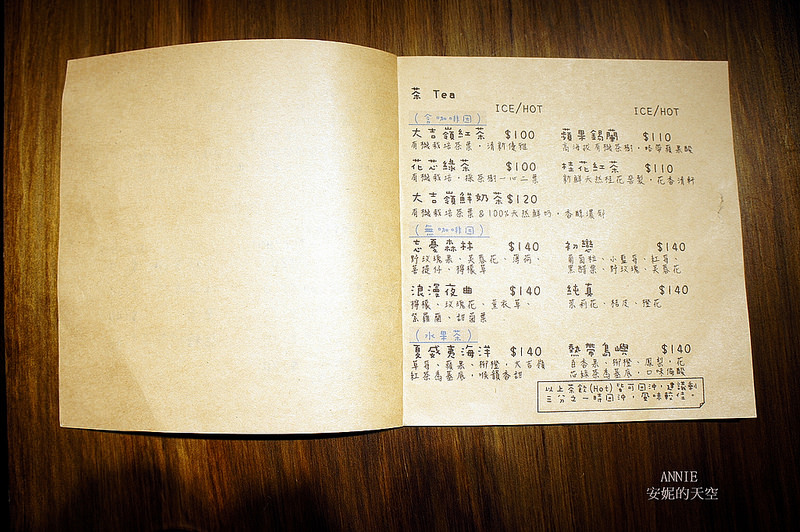 茶 Tea
ICE/HOT ICE/HOT
(含咖啡因)
大吉嶺紅茶 $100
有機栽培茶葉，清新優雅
蘋果錫蘭 $110
高海拔有機茶樹，略帶蘋果酸
花芯綠茶 $100
有機栽培，採茶樹一心二葉
桂花紅茶 $110
新鮮天然桂花窨製，花香清軒
大吉嶺鮮奶茶 $120
有機栽培茶葉&100%天然鮮奶，香醇濃郁
(無咖啡因)
忘憂森林 $140
野玫瑰果、芙蓉花、薄荷、
菩提仔、檸檬草
初戀 $140
葡萄粒、小藍莓、紅莓、
黑醋栗、野玫瑰、芙蓉花
浪漫夜曲 $140
檸檬、玫瑰花、薰衣草、
紫羅蘭、甜菌葉
純真 $140
茉莉花、桔皮、橙花
(水果茶)
夏威夷海洋 $140
草莓、蘋果、柳橙，大吉嶺
紅茶為基底，喉韻香甜
熱帶島嶼 $140
百香果、柳橙、鳳梨，花
芯綠茶為基底，口味偏酸
以上茶飲(Hot)皆可回沖，建議剩
三分之一時回沖，風味較佳。
ANNIE
安妮的天空